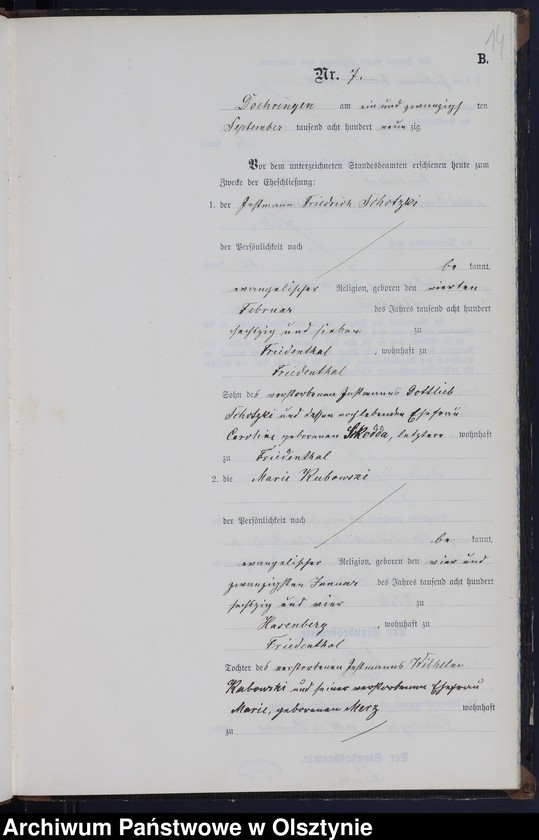 14
B.
Nr. 7.
Doehringen am ein und zwanzigs ten
September tausend acht hundert neun zig.
Vor dem unterzeichneten Standesbeamten erschienen heute zum
Zwecke der Eheschließung:
1. der Instmann Friedrich Schotzki
der Persönlichkeit nach
be kannt,
evangelischer Religion, geboren den vierten
Februar des Jahres tausend acht hundert
sechszig und sieben zu
Friedenthal, wohnhaft zu
Friedenthal
Sohn des verstorbenen Instmanns Gottlieb
Schotzki und dessen noch lebenden Ehefrau
Caroline geborenen Skodda, letztere wohnhaft
zu Friedenthal
2. die Marie Kubowski
der Persönlichkeit nach
be kannt,
evangelischer Religion, geboren den vier und
zwanzigsten Januar des Jahres tausend acht hundert
sechszig und vier zu
Hasenberg, wohnhaft zu
Friedenthal
Tochter des verstorbenen Instmanns Wilhelm
Kubowski und seiner verstorbenen Ehefrau
Marie, geborenen Merz wohnhaft
zu
Archiwum Państwowe w Olsztynie